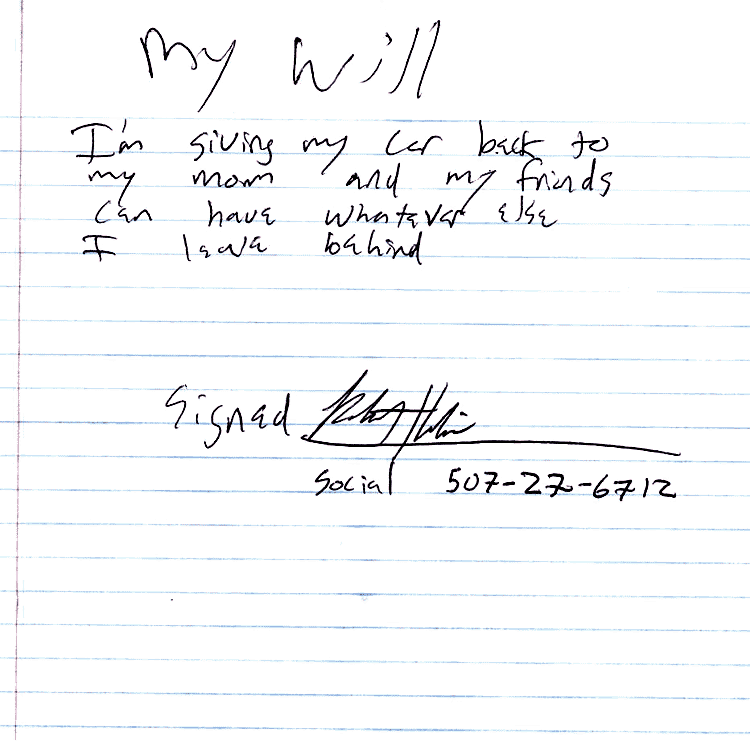 My Will
I'm giving my car back to
my mom and my friends
can have whatever else
I leave behind
Signed
Social 507-27-6712